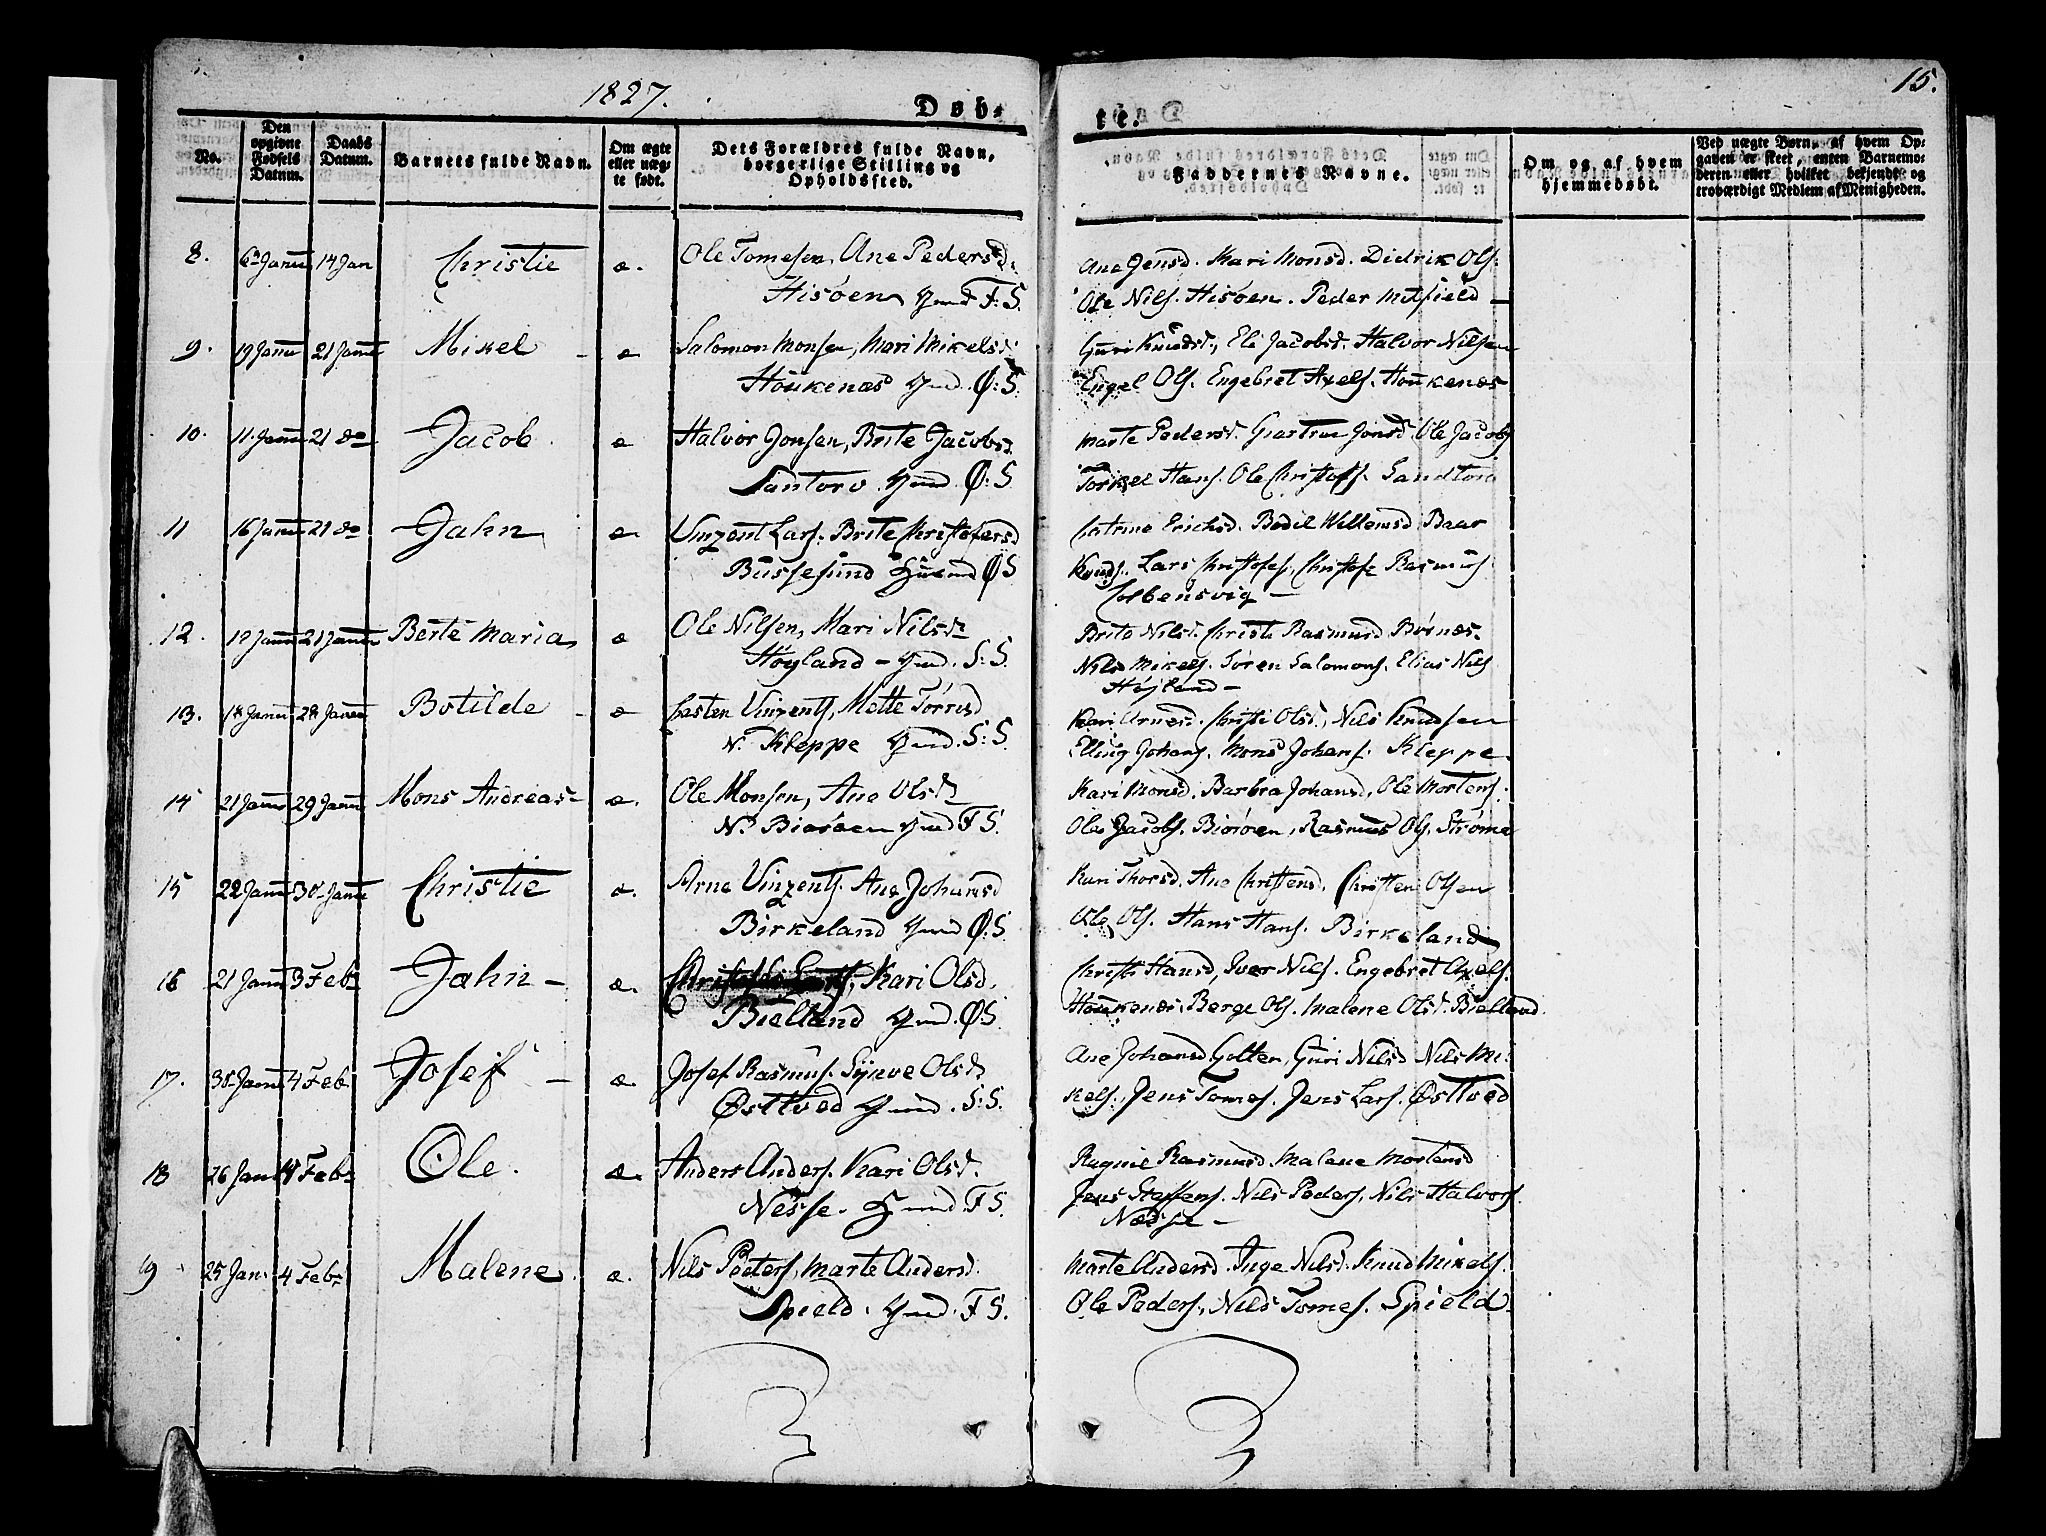 1827.
15.
Døb-
te.
No.
Den opgivne Fødsels Datum.
Daabs Datum.
Barnets fulde Navn.
Om ægte eller uæg- te født.
Dets Forældres fulde Navn, borgerlige Stilling og Opholdssted.
Faddernes Navne.
Om og af hvem hjemmedøbt.
Ved uægte Børn, af hvem Op- gaven er skeet, enten Barnemo- deren eller hvilket bekjendt og troværdigt Medlem af Menigheden.
8. 14 Jan Christie æ. Ole Tomesen, Ane Pedersd.
Hisøen F: S.
Ane Jensd. Kari Monsd. Didrik Ols.
Ole Nils. Hisøen. Peder
9. 19 Janu 21 Janu Mikel æ Salomon Monsen, Mari Mikelsd.
Houkenæs Ø: S.
Guri Knudsd., Eli Jacobsd. Halvor Nilsen
Engel Ols. Engebret Axels. Houkenæs
10. 11. Janu 21 do Jacob æ Halvor Jonsen, Brite Jacobsd.
Santorv Ø: S.
Marte Pedersd. Jonsd. Ole Jacobs
Torkel Hans. Ole Christofs. Sandtorv
11 16 Janu 21 do Jahn æ Vinzent Lars. Brite Christofersd
Bussesund Ø S
Catrine Erichsd. Bodil Willemsd. Baar
Knuds. Lars Christofes, Christofe Rasmus
Colbensvig
12. 21 Janu Berte Maria æ Ole Nilsen, Kari Nilsd.
Høyland S: S.
Brite Nilsd. Christi Rasmusd Børnæs.
Nils Mikels. Søren Salomons. Elias Nils
Høyland
13. 28 Janu Botilde æ Casten Vinzents, Mette Torrisd
N. Kleppe S: S.
Kari Arnesd. Christi Olsd., Nils Knudsen
Elling Johans. Mons Johans. Kleppe
14 21 Janu 29 Janu Mons Andreas æ. Ole Monsen, Ane Olsd.
N. Biorøen F S.
Kari Monsd. Barbra Johansd, Ole Mortens.
Ole Jacobs. Biorøen, Rasmus Ols. Strøme
15 22 Janu 30 Janu Christie æ. Arne Vinzents. Ane Johansd
Birkeland Ø: S
Kari Thorsd. Ane Christensd. Christen Olsen
Ole Ols. Hans Hans. Birkeland
16 21 Janu 3 Feb Jahn æ. Kari Olsd.
Bielland Ø S.
Christi Hansd, Iver Nils. Engebret Axels.
Houkenæs. Berge Ols. Malene Olsd. Bielland
17. 30 Janu 4 Feb. Josef æ. Josef Rasmus. Synve Olsd.
Østtved S: S.
Ane Johansd Golten, Guri Nilsd Nils Mi-
kels. Jens Tomes. Jens Lars. Østtved
18 26 Jan Feb Ole. æ. Anders Anders. Kari Olsd.
Nesse. F S.
Ragnil Rasmusd. Malene Mortensd
Jens Steffens. Nils Peders, Nils Halvors.
Nesse
19 25 Jan. 4 Feb Malene æ. Nils Peders, Marte Andersd.
Spield. F S.
Marte Andersd. Inge Nilsd. Knud Mikels.
Ole Peders, Nils Tomes. Spield